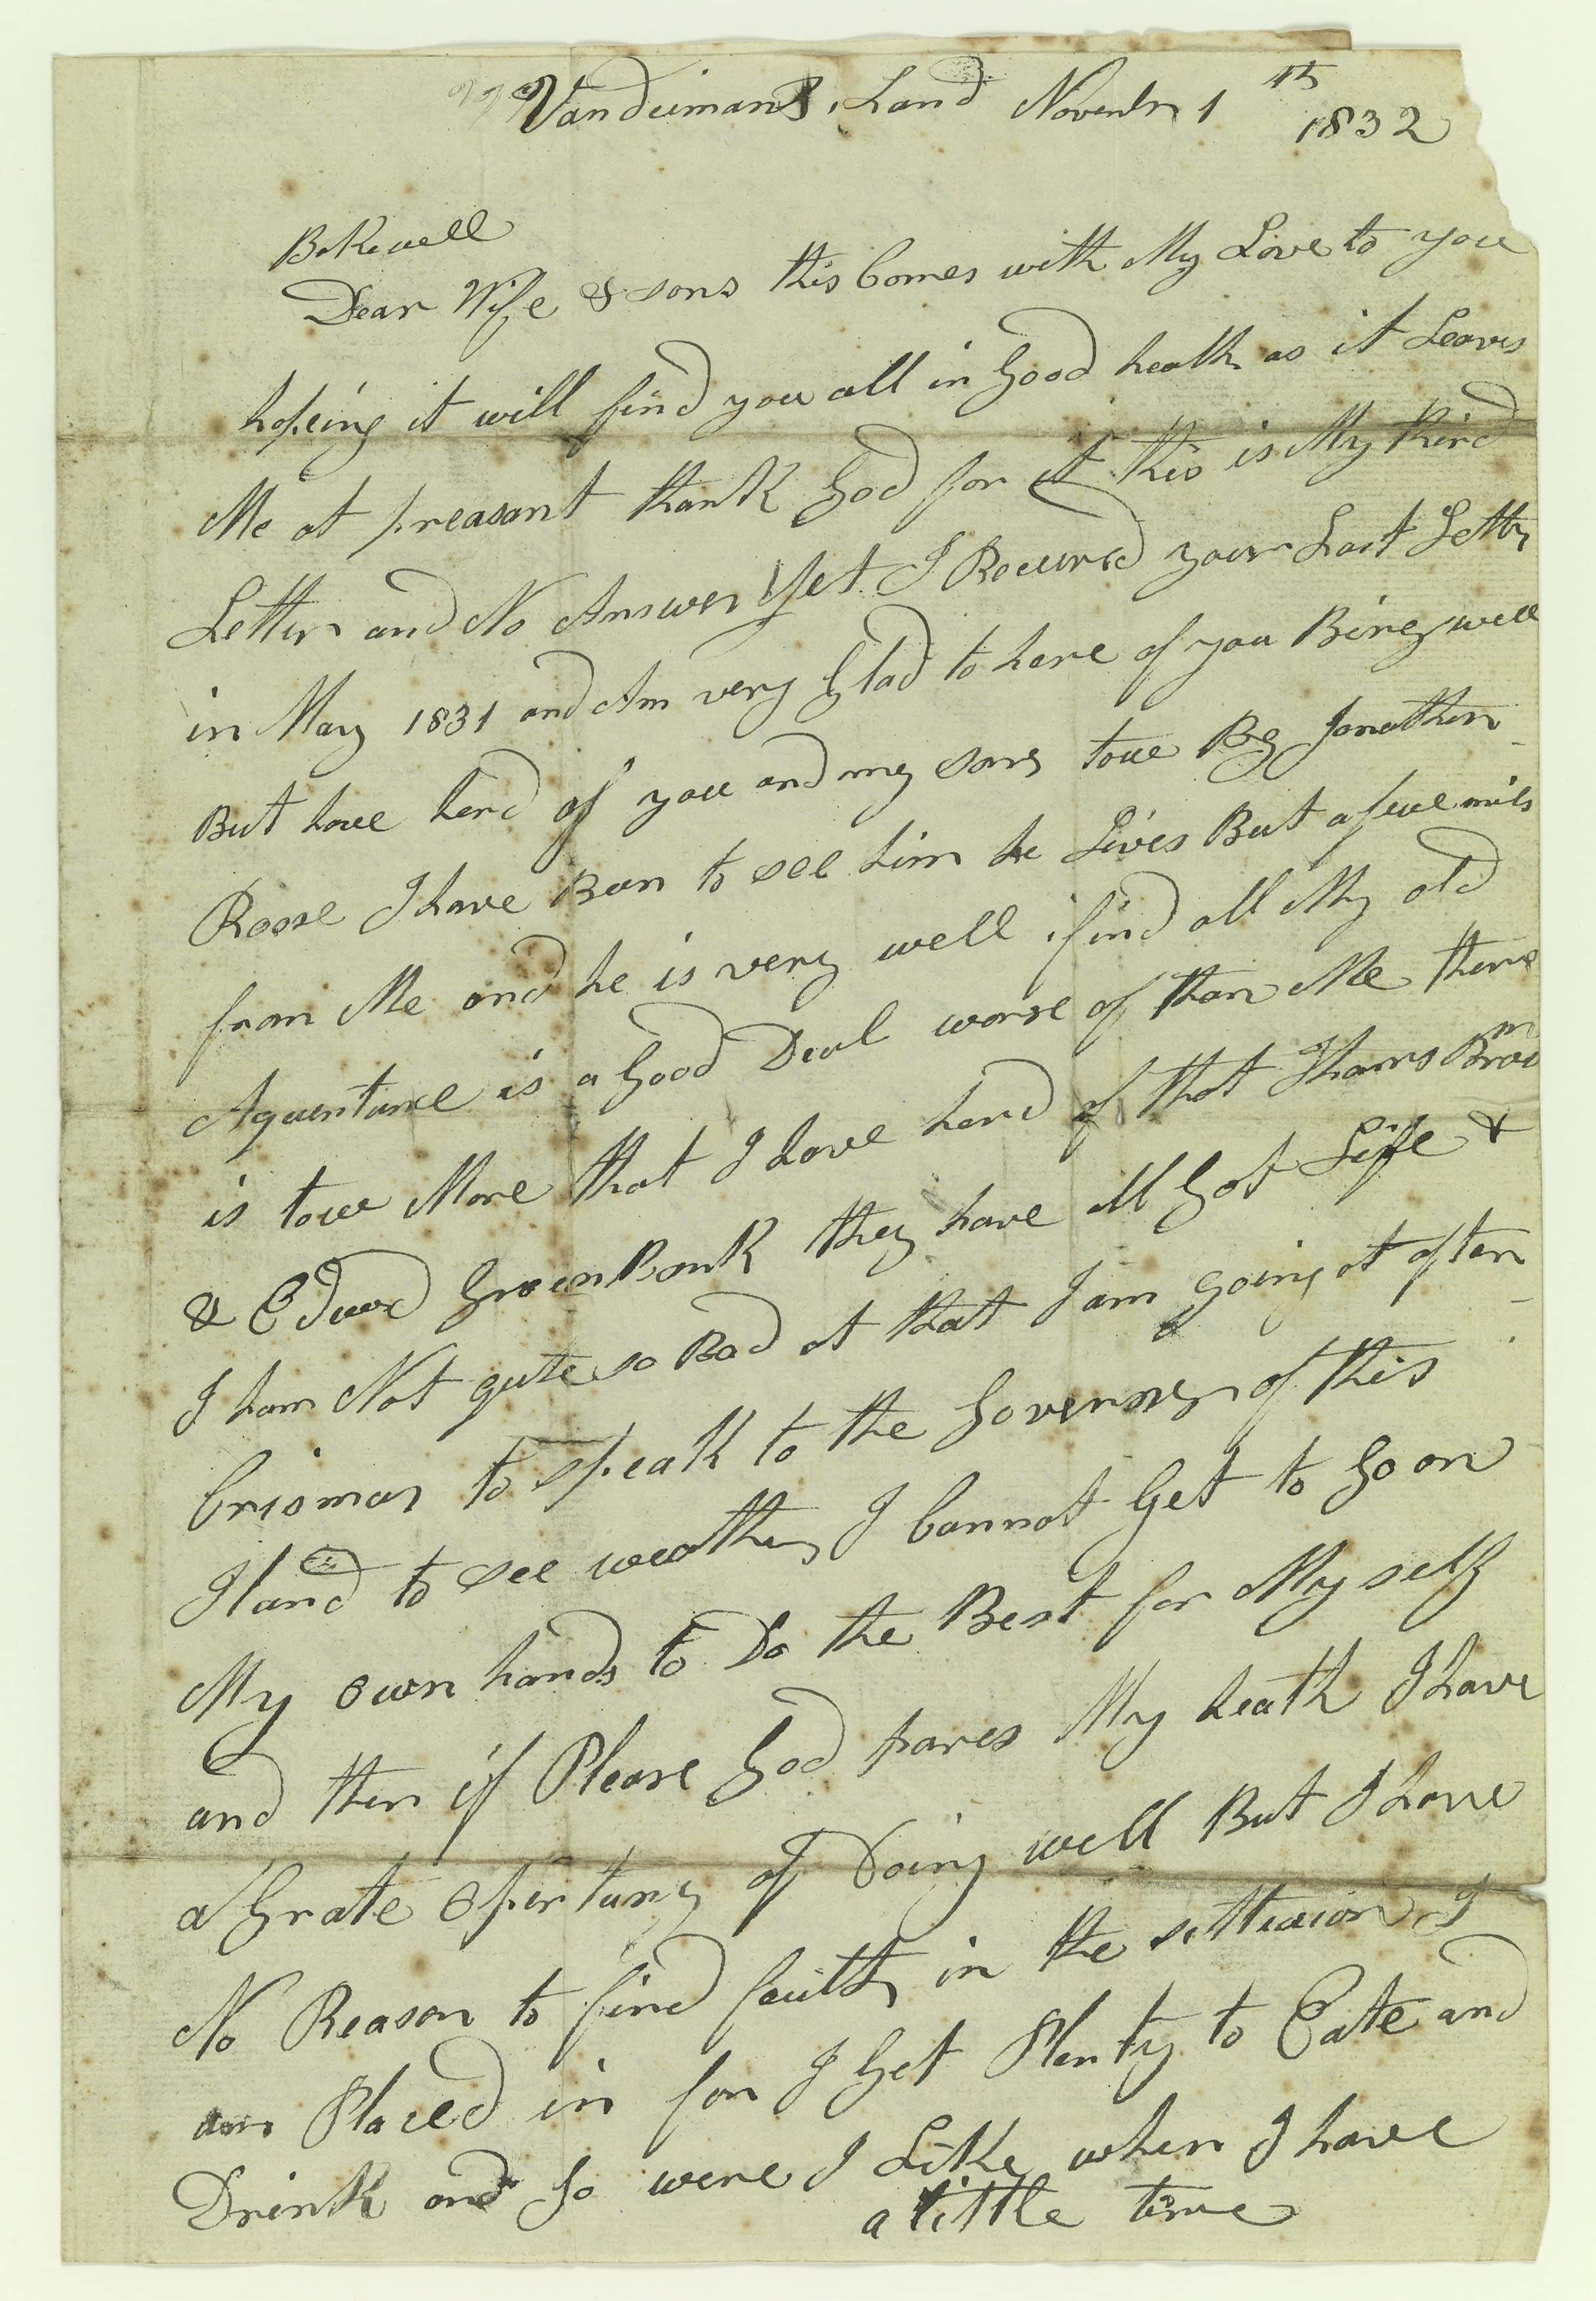 Vandeimans Land Novembr 1 th
1832
Bakewell
Dear Wife & sons this Comes with My Love to you
hopeing it will find you all in Good heath as it Leaves
Me at preasant thank God for it this is My third
Letter and No Answer Yet I Receved your Last Letter
in May 1831 and Am very Glad to here of you Bing well
But have herd of you and my sons towe By Jonathen
Roose I have Ben to see him he Lives But a fewe mils
from Me and he is very well i find all My old
Aquentance is a Good Deal worse of than Me there
is towe More that I have herd of that Thams Brown
& Edward GreenBank they have All Got Life &
I ham Not quite so Bad at that I am going at often
Crismas to speak to the Governer of this
Iland to see weather I Cannot Get to Go on
My own hands to Do the Best for My self
and then if Please God spares My heath I have
a Grate Opertuny of Doing well But I have
No Reason to find faulth in the sittuaion I
am Placed in for I Get Plenty to Eate and
Drink and Go were I Like when I have
a little time